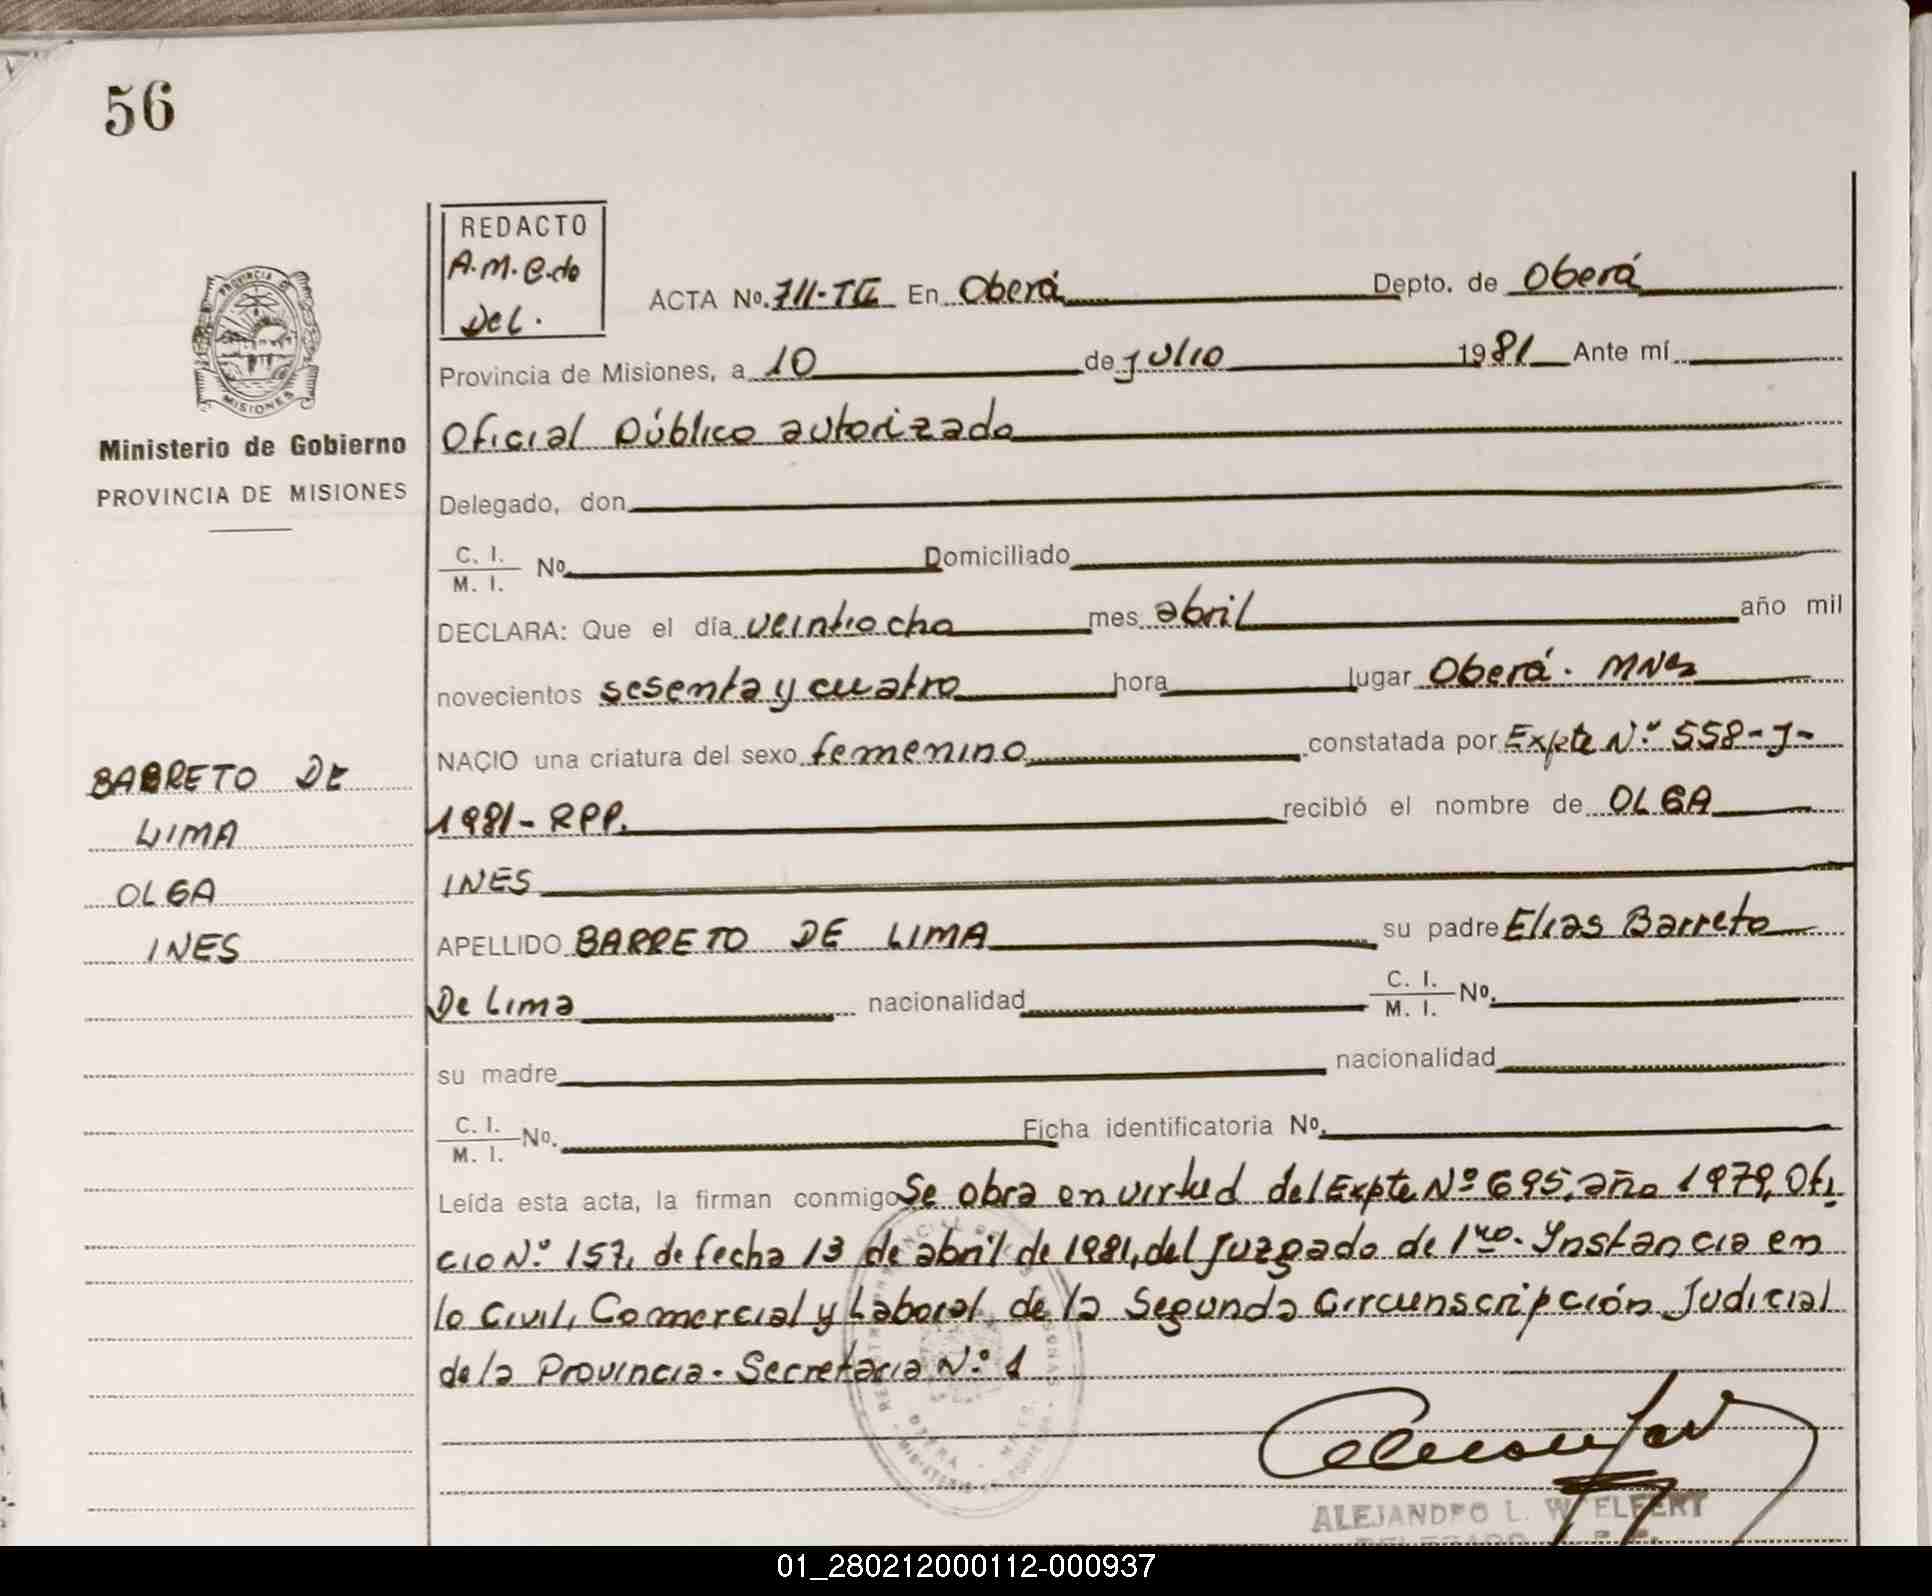 56
REDACTO
A.M.C.de
Del.
ACTA No. 711-TII En Oberá Depto. de Oberá
Provincia de Misiones, a 10 de julio 1981 Ante mí
Oficial Público autorizado
Delegado, don
C. I. / M. I. No Domiciliado
DECLARA: Que el día veintiocho mes abril año mil
novecientos sesenta y cuatro hora lugar Oberá. MNes
NACIO una criatura del sexo femenino constatada por Expte Nº 558-J-
1981-RPP. recibió el nombre de OLGA
INES
APELLIDO BARRETO DE LIMA su padre Elias Barreto
De Lima nacionalidad C. I. / M. I. No.
su madre nacionalidad
C. I. / M. I. No. Ficha identificatoria No.
Leída esta acta, la firman conmigo Se obra en virtud del Expte Nº 695, año 1979, Ofi
cio Nº 157, de fecha 13 de abril de 1981, del Juzgado de 1ro. Instancia en
lo Civil, Comercial y Laboral de la Segunda Circunscripción Judicial
de la Provincia. Secretaria Nº 1
ALEJANDRO L. W. ELFERT
DELEGADO
PROVINCIA DE
MISIONES
Ministerio de Gobierno
PROVINCIA DE MISIONES
BARRETO DE
LIMA
OLGA
INES
01_280212000112-000937